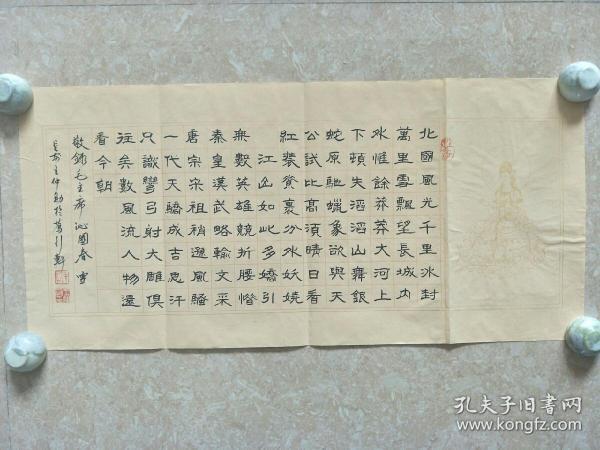 北國風光千里冰封
萬里雪飄望長城内
外惟餘莽莽大河上
下頓失滔滔山舞銀
蛇原馳蠟象欲與天
公試比高須晴日看
紅裝素裹分外妖嬈
江山如此多嬌引
無數英雄競折腰惜
秦皇漢武略輸文采
唐宗宋祖稍遜風騷
一代天驕成吉思汗
只識彎弓射大雕俱
往矣數風流人物還
看今朝
敬錄毛主席沁園春雪
孔夫子旧书网
www.kongfz.com